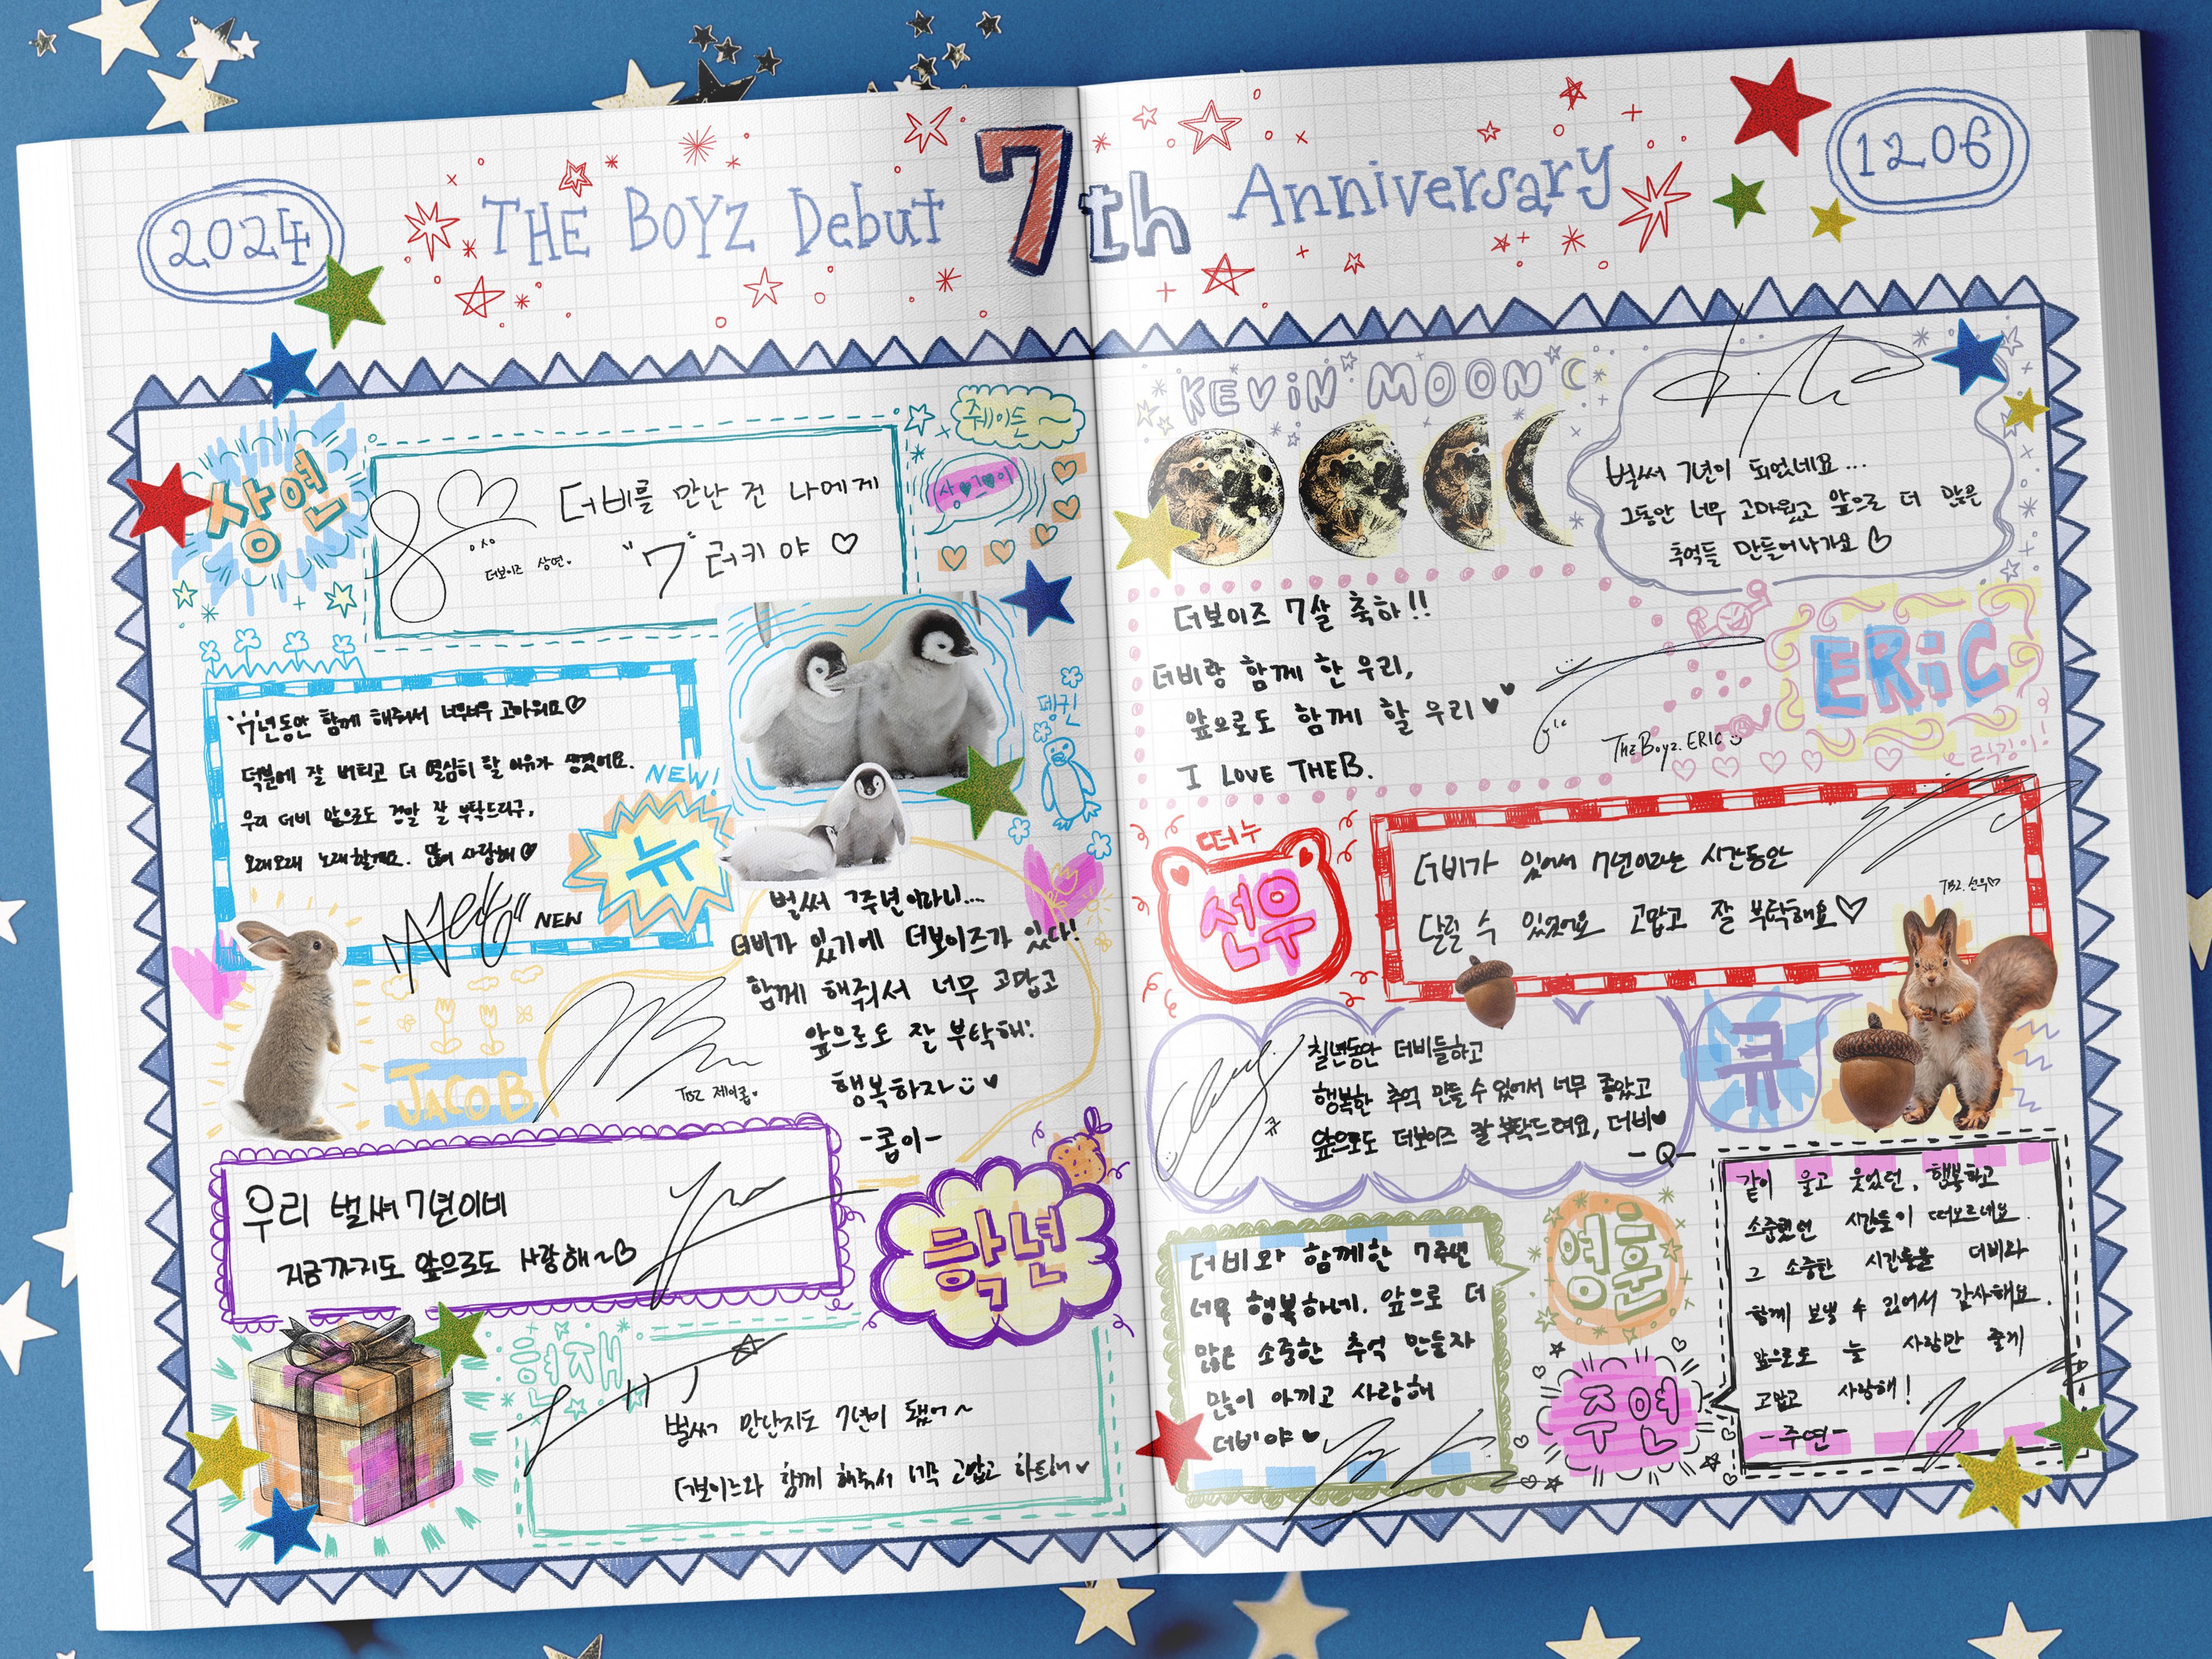 2024
THE BOYZ Debut 7th Anniversary
1206
상연
더비를 만난 건 나에게
"7"러키야 ♡
더보이즈 상연.
쥐이든~
상♥연♥이
'7년동안 함께 해줘서 너무너무 고마워요♡
덕분에 잘 버티고 더 열심히 할 이유가 생겼어요.
우리 더비 앞으로도 정말 잘 부탁드리구,
오래오래 노래할게요. 많이 사랑해♡
NEW
NEW!
뉴
뎅귄
벌써 7주년이라니...
더비가 있기에 더보이즈가 있다!
함께 해줘서 너무 고맙고
앞으로도 잘 부탁해!
행복하자
-콥이-
JACOB
TBZ 제이콥♥
우리 벌써 7년이네
지금까지도 앞으로도 사랑해~♡
학년
현재
벌써 만난지도 7년이 됐어~
더보이즈와 함께 해줘서 너무 고맙고 하트해♥
KEVIN MOON
벌써 7년이 되었네요...
그동안 너무 고마웠고 앞으로 더 많은
추억들 만들어나가요♡
더보이즈 7살 축하!!
더비랑 함께 한 우리,
앞으로도 함께 할 우리♥♥
I LOVE THEB.
THE BOYZ. ERIC
ERIC
에릭깅이!
떠누
선우
더비가 있어서 7년이라는 시간동안
달릴 수 있었어요 고맙고 잘 부탁해요♡
TBZ. 선우♡
칠년동안 더비들하고
행복한 추억 만들 수 있어서 너무 좋았고
앞으로도 더보이즈 잘 부탁드려요, 더비♥
-Q-
큐
더비와 함께한 7주년
너무 행복하네. 앞으로 더
많은 소중한 추억 만들자
많이 아끼고 사랑해
더비야♥
영훈
주연
같이 울고 웃었던, 행복하고
소중했던 시간들이 떠오르네요.
그 소중한 시간들을 더비와
함께 보낼 수 있어서 감사해요.
앞으로도 늘 사랑만 줄게
고맙고 사랑해!
-주연-